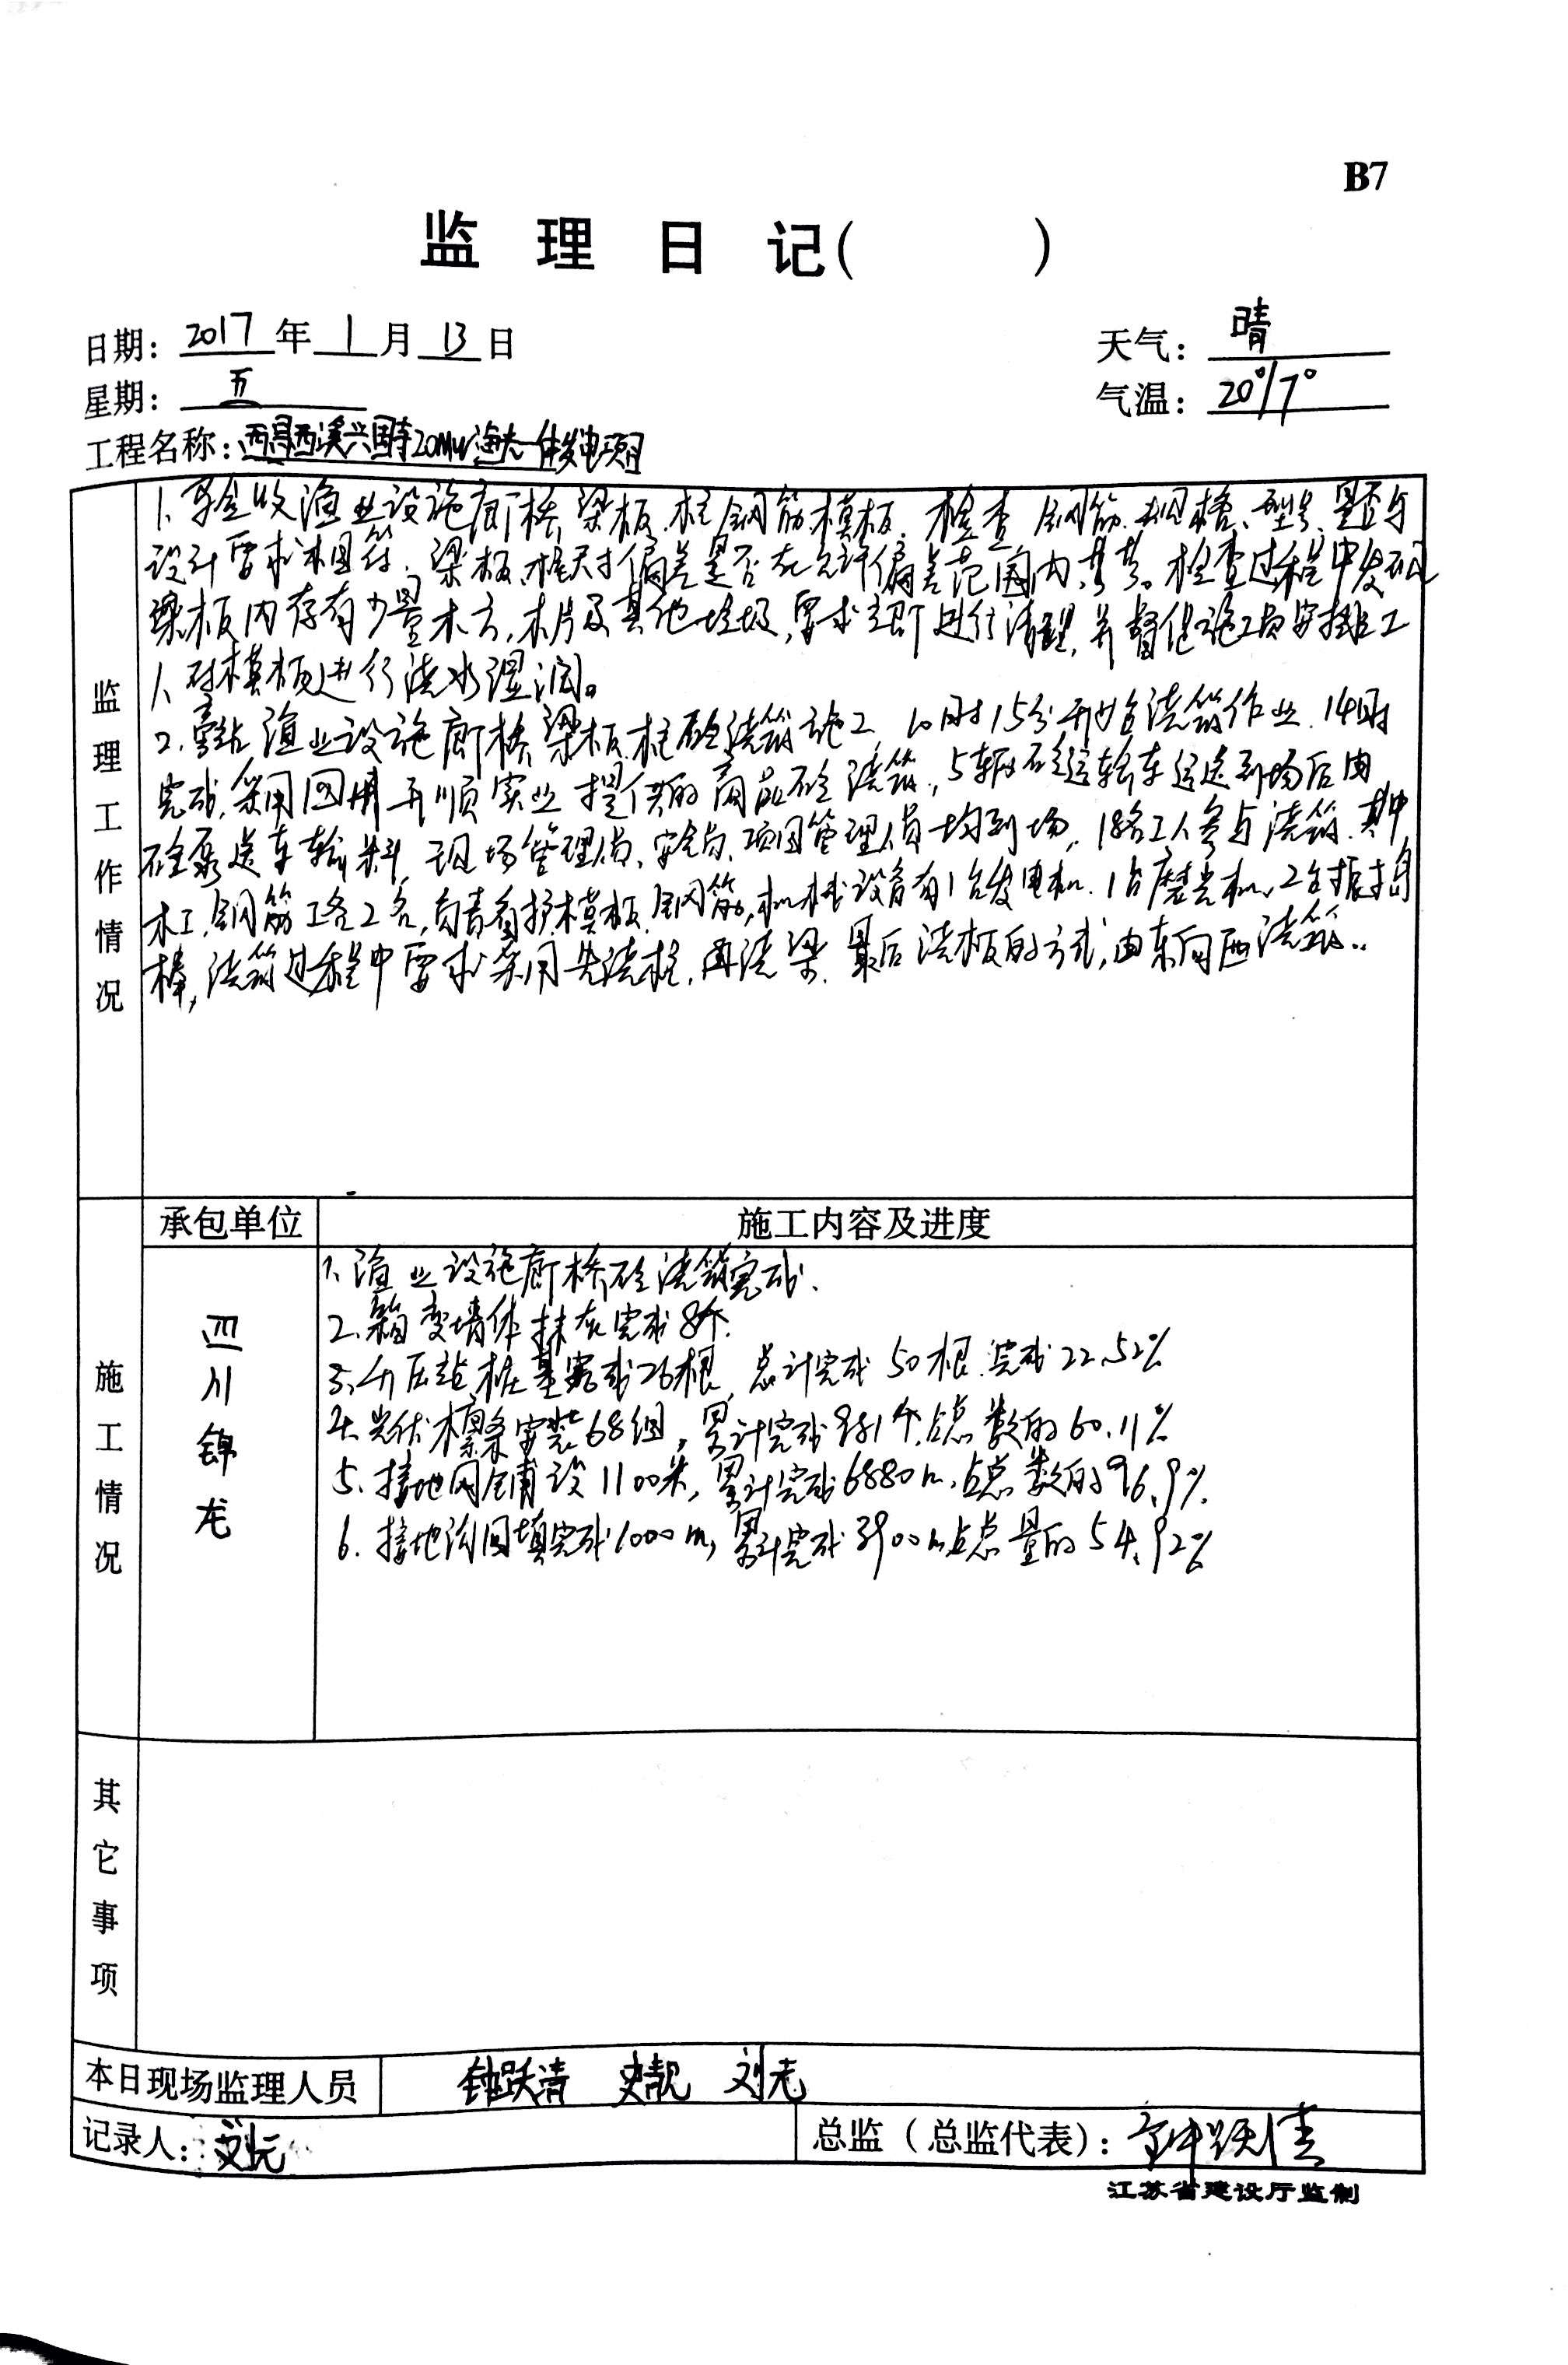 B7
监 理 日 记( )
日期: 2017 年 1 月 13 日
天气: 晴
星期: 五
气温: 20°/7°
工程名称: 西溪兴国寺20MW渔光一体发电项目
监理工作情况
1、验收渔业设施廊桥、梁板、柱钢筋、模板、检查钢筋、规格、型号、是否与
设计要求相符、梁板、柱尺寸偏差是否在允许偏差范围内等等。检查过程中发现
梁板内存有少量木方,木片及其他垃圾,要求立即进行清理,并督促施工员安排工
人对模板进行浇水湿润。
2、旁站渔业设施廊桥梁板、柱砼浇筑施工,10时15分开始浇筑作业、14时
完成,采用开顺实业提供的商品砼浇筑,5辆砼运输车运送到场后由
砼泵送车输料,现场管理员、安全员、项目管理人员均到场,18名工人参与浇筑、其中
木工、钢筋工各2名,负责看护模板、钢筋,机械设备有1台发电机、1台磨光机、2台振捣
棒,浇筑过程中要求采用先浇柱,再浇梁、最后浇板的方式,由东向西浇筑..
承包单位 施工内容及进度
施工情况
四川锦龙
1、渔业设施廊桥砼浇筑完成、
2、箱变墙体抹灰完成8个.
3、升压站桩基完成26根,总计完成50根.完成22.52%
4、光伏檩条安装68组,累计完成851个,占总数的60.11%
5、接地网铺设1100米,累计完成6880m,占总数的96.9%.
6、接地沟回填完成1000m,累计完成3900m占总量的54.92%
其它事项
本日现场监理人员 钟跃清 史靓 刘元
记录人: 刘元 总监(总监代表): 钟跃清
江苏省建设厅监制